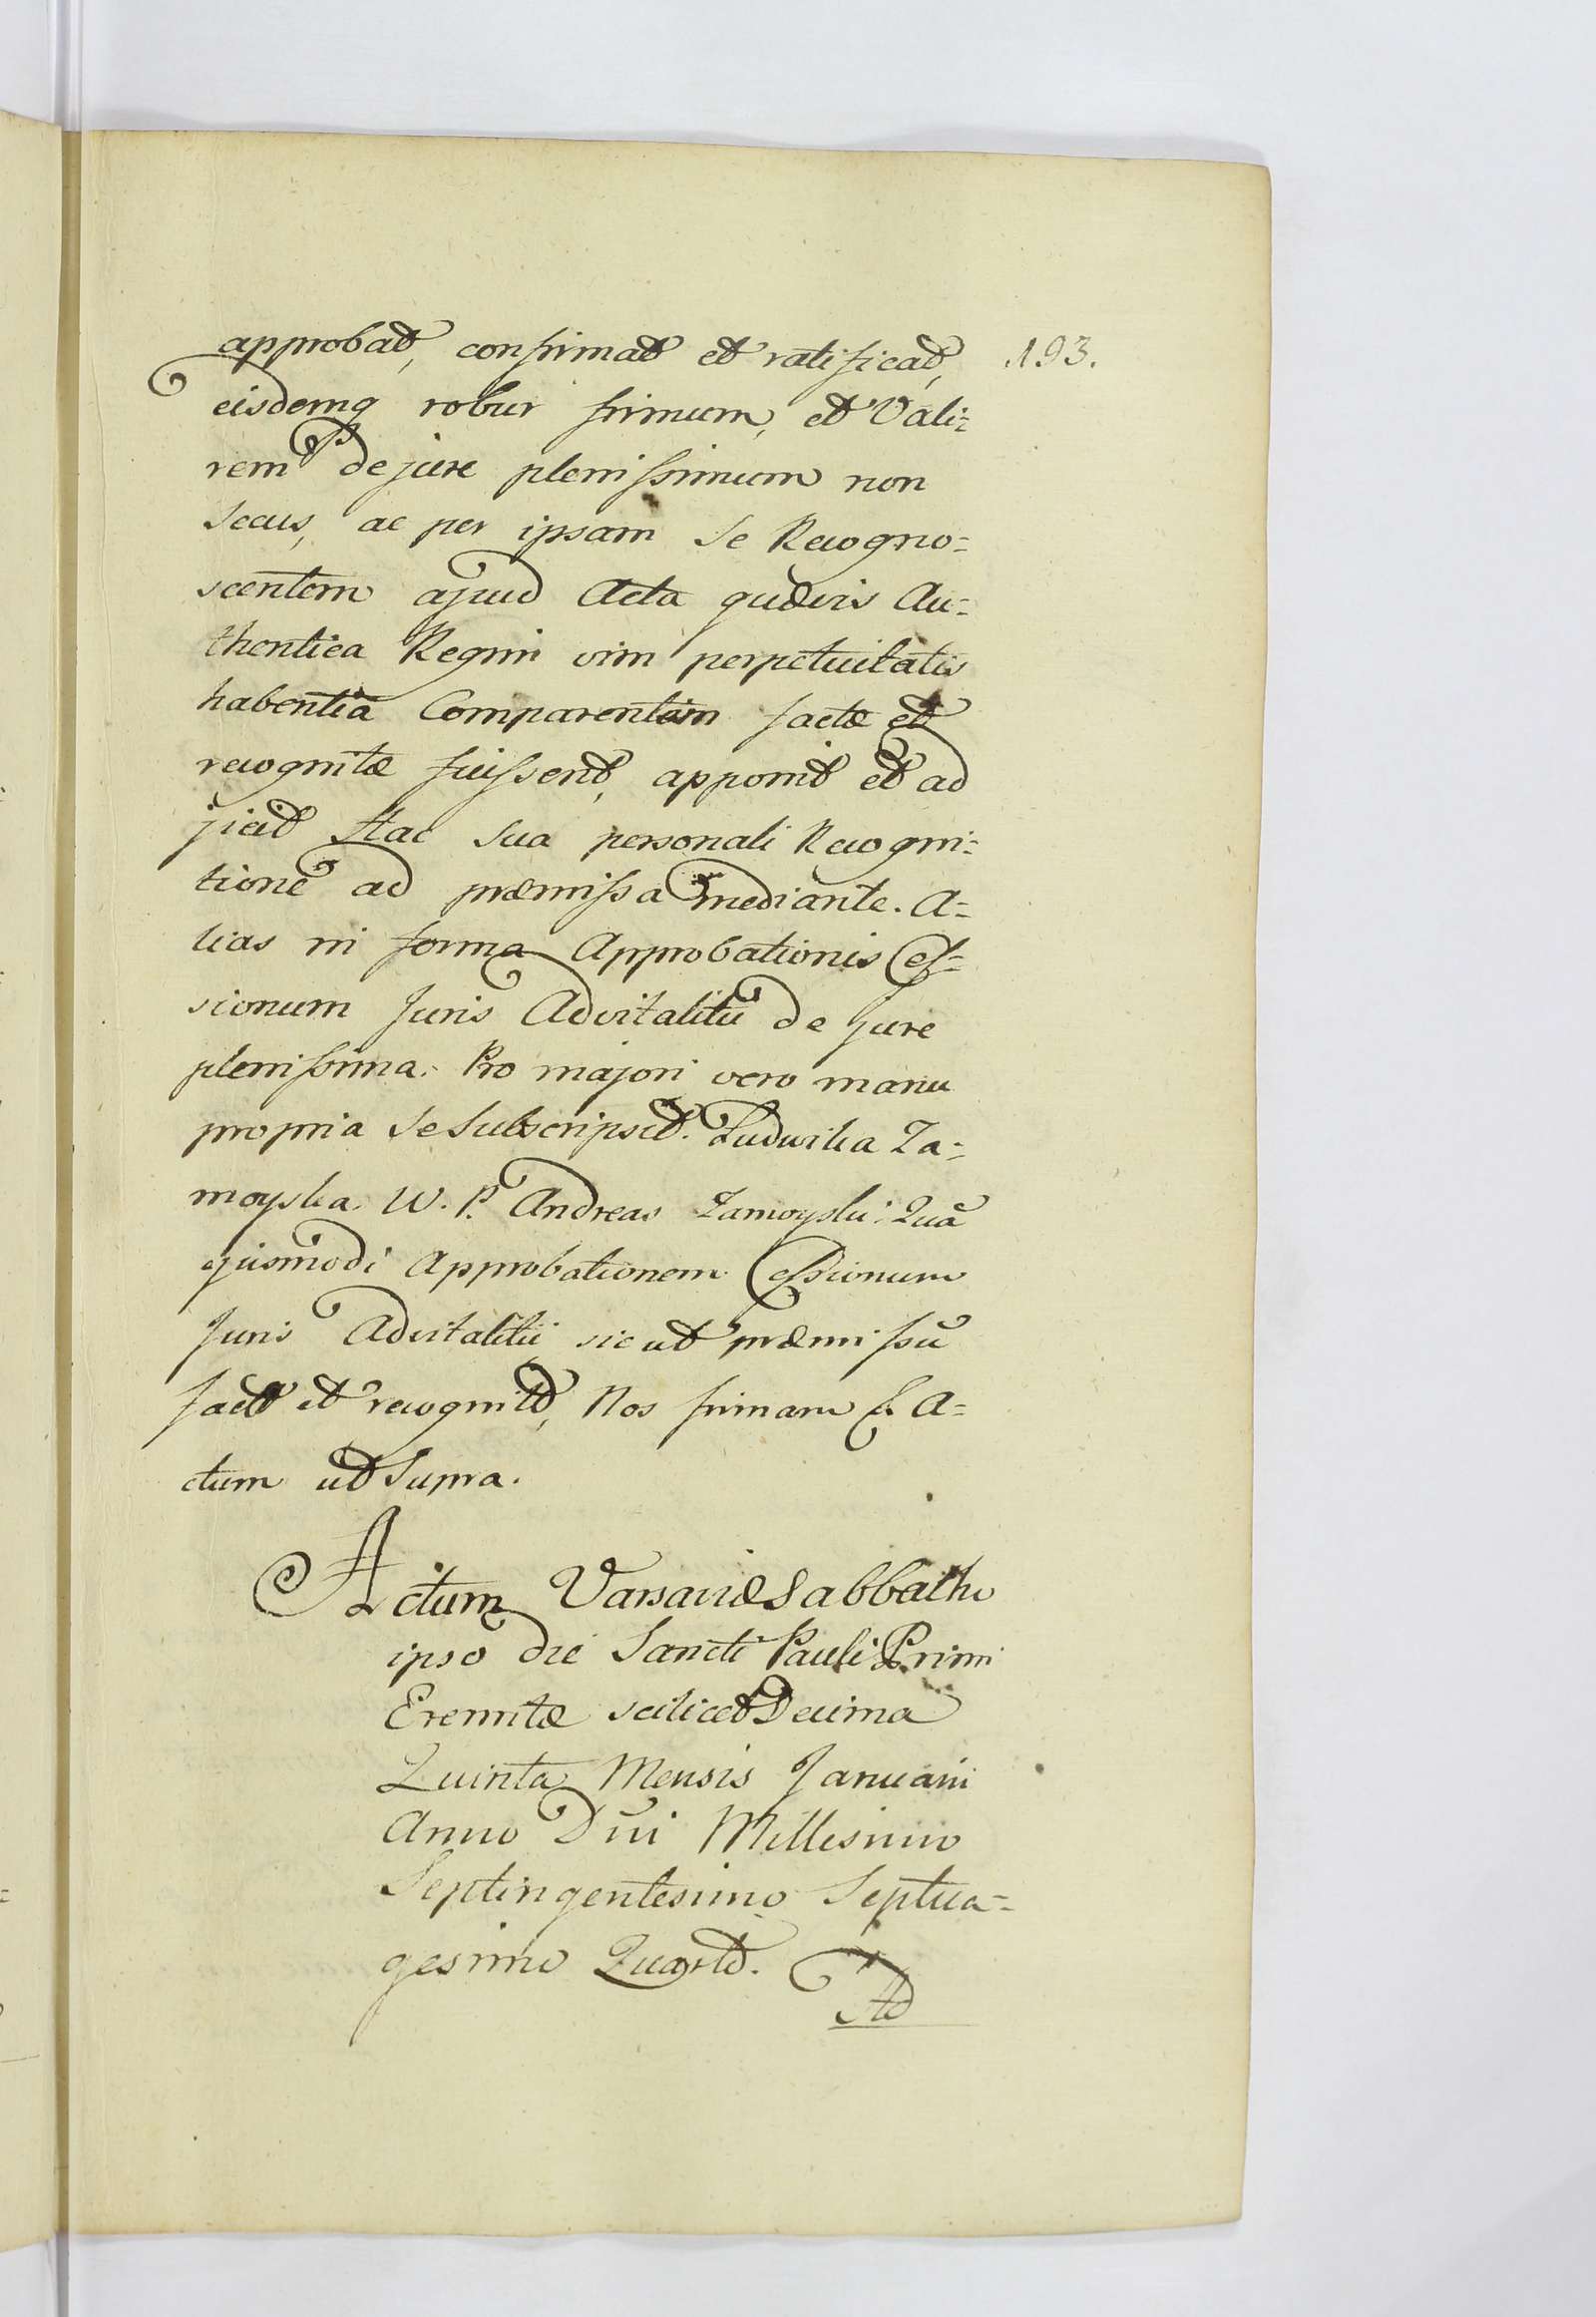 approbat, confirmat et ratificat, 193.
eisdemq robur firmum, et Vali=
rem de jure plenissimum non
secus, ac per ipsam se Recogno=
scentem apud Acta quævis Au=
thentica Regni vim perpetuitatis
habentia Comparentem factæ et
recognitæ fuissent, apponit et ad
jicit Hac sua personali Recogni=
tione ad præmissa mediante. A=
lias in forma Approbationis Ces=
sionum Juris Advitalitii de jure
plenissima. Pro majori vero manu
propria se subscripsit. Ludwika Za=
moyska. W. P. Andreas Zamoyski. Quã
ejusmodi Approbationem Cessionum
Juris Advitalitii, sicut præmissũ
fact et recognit, Nos firmam &. A=
ctum ut supra.
Actum Varsaviæ Sabbatho
ipso die Sancti Pauli Primi
Eremitæ scilicet Decima
Quinta Mensis Januarii
Anno Dñi Millesimo
Septingentesimo Septua=
gesimo Quarto.
Ad